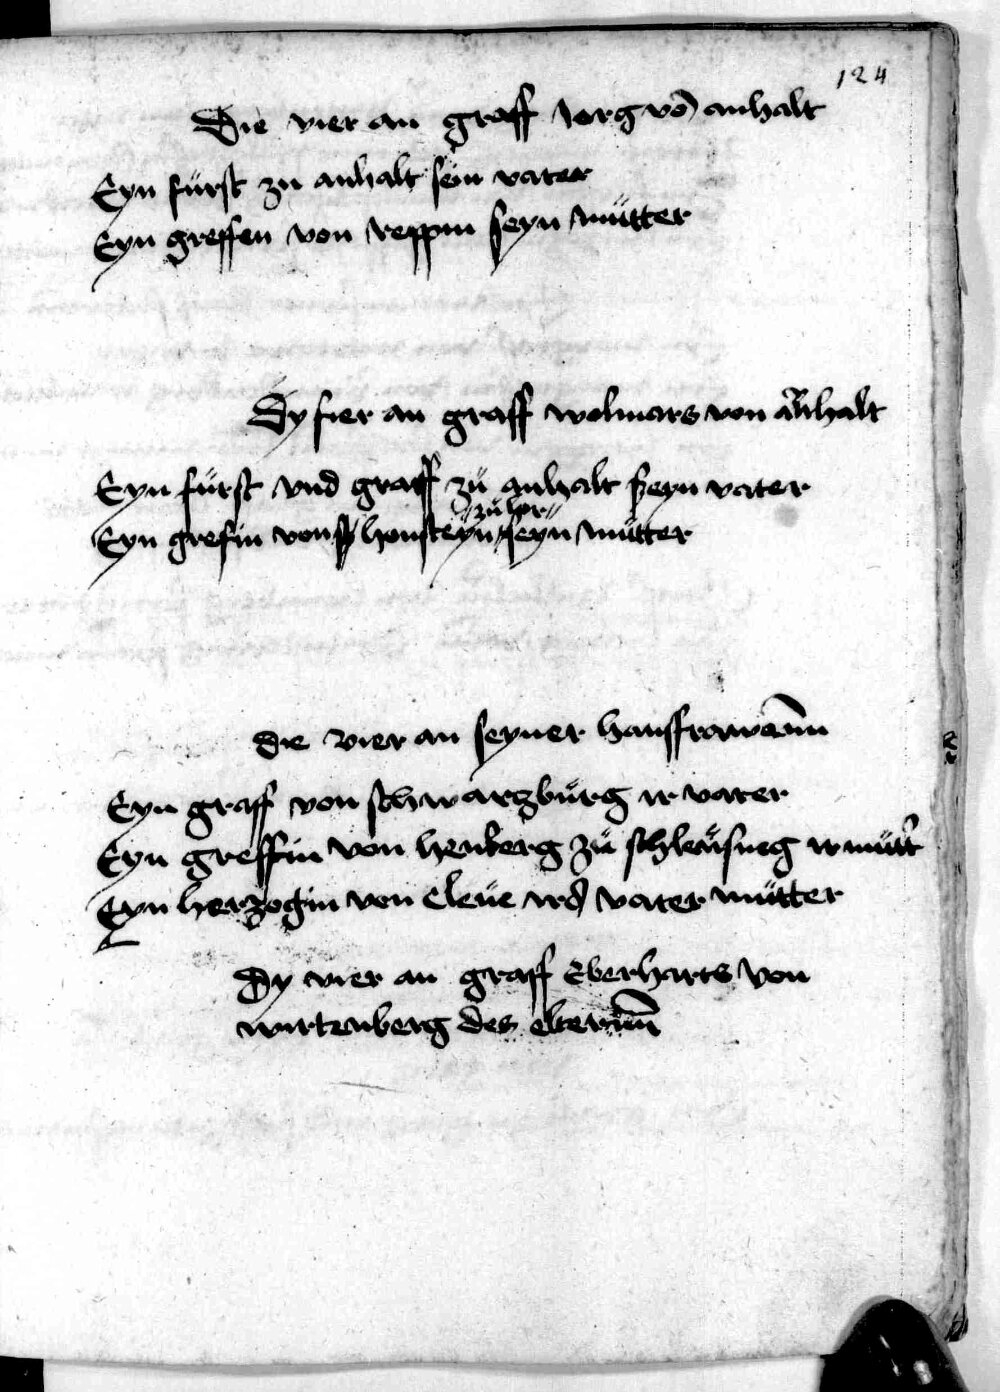 124
Die vier an graff Jorg võ anhalt
Eyn fürst zu anhalt sein vater
Eyn greffen von reppin seyn mütter
Dy fier an graff wolmars von anhalt
Eyn fürst vnd graff zü anhalt seyn vater
zü lor
Eyn grefin von honsteyn seyn mütter
die vier an seyner haussfrawenn
Eyn graff von schwarzbürg ir vater
Eyn greffin von henberg zü schleüsing ir mütt
Eyn herzogin von Cleüe irs vater mütter
Dy vier an graff Eberharts von
wirtenberg des eltern